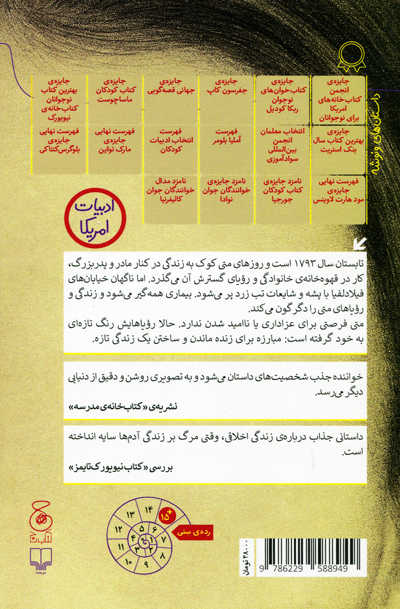 داستان‌های ونوشه
جایزه‌ی
انجمن
کتاب‌خانه‌های
امریکا
برای نوجوانان
جایزه‌ی
کتاب‌خوان‌های
نوجوان
ربکا کودیل
جایزه‌ی
جفرسون کاپ
جایزه‌ی
جهانی قصه‌گویی
جایزه‌ی
کتاب کودکان
ماساچوست
جایزه‌ی
بهترین کتاب
نوجوانان
کتاب‌خانه‌ی
نیویورک
جایزه‌ی
بهترین کتاب سال
بنک استریت
انتخاب معلمان
انجمن
بین‌المللی
سوادآموزی
فهرست
آملیا بلومر
فهرست
انتخاب ادبیات
کودکان
فهرست نهایی
جایزه‌ی
مارک تواین
فهرست نهایی
جایزه‌ی
بلوگرس کنتاکی
فهرست نهایی
جایزه‌ی
مود هارت لاویس
نامزد جایزه‌ی
کتاب کودک
جورجیا
نامزد جایزه‌ی
خوانندگان جوان
نوادا
نامزد مدال
خوانندگان جوان
کالیفرنیا
ادبیات
امریکا
تابستان سال ۱۷۹۳ است و روزهای متی کوک به زندگی در کنار مادر و پدربزرگ،
کار در قهوه‌خانه‌ی خانوادگی و رؤیای گسترش آن می‌گذرد. اما ناگهان خیابان‌های
فیلادلفیا با پشه و شایعات تب زرد پر می‌شود. بیماری همه‌گیر می‌شود و زندگی و
رؤیاهای متی را دگرگون می‌کند.
متی فرصتی برای عزاداری یا ناامید شدن ندارد. حالا رؤیاهایش رنگ تازه‌ای
به خود گرفته است: مبارزه برای زنده ماندن و ساختن یک زندگی تازه.
خواننده جذب شخصیت‌های داستان می‌شود و به تصویری روشن و دقیق از دنیایی
دیگر می‌رسد.
نشریه‌ی «کتاب‌خانه‌ی مدرسه»
داستانی جذاب درباره‌ی زندگی اخلاقی، وقتی مرگ بر زندگی آدم‌ها سایه انداخته
است.
بررسی «کتاب نیویورک تایمز»
رده‌ی سنی
+۱۵
۱۴
۱۳
۱۲
۱۱
۱۰
۹
۸
۷
۶
۵
۴
۳
۲
۱
۳۸۰۰۰ تومان
9 786229 588949